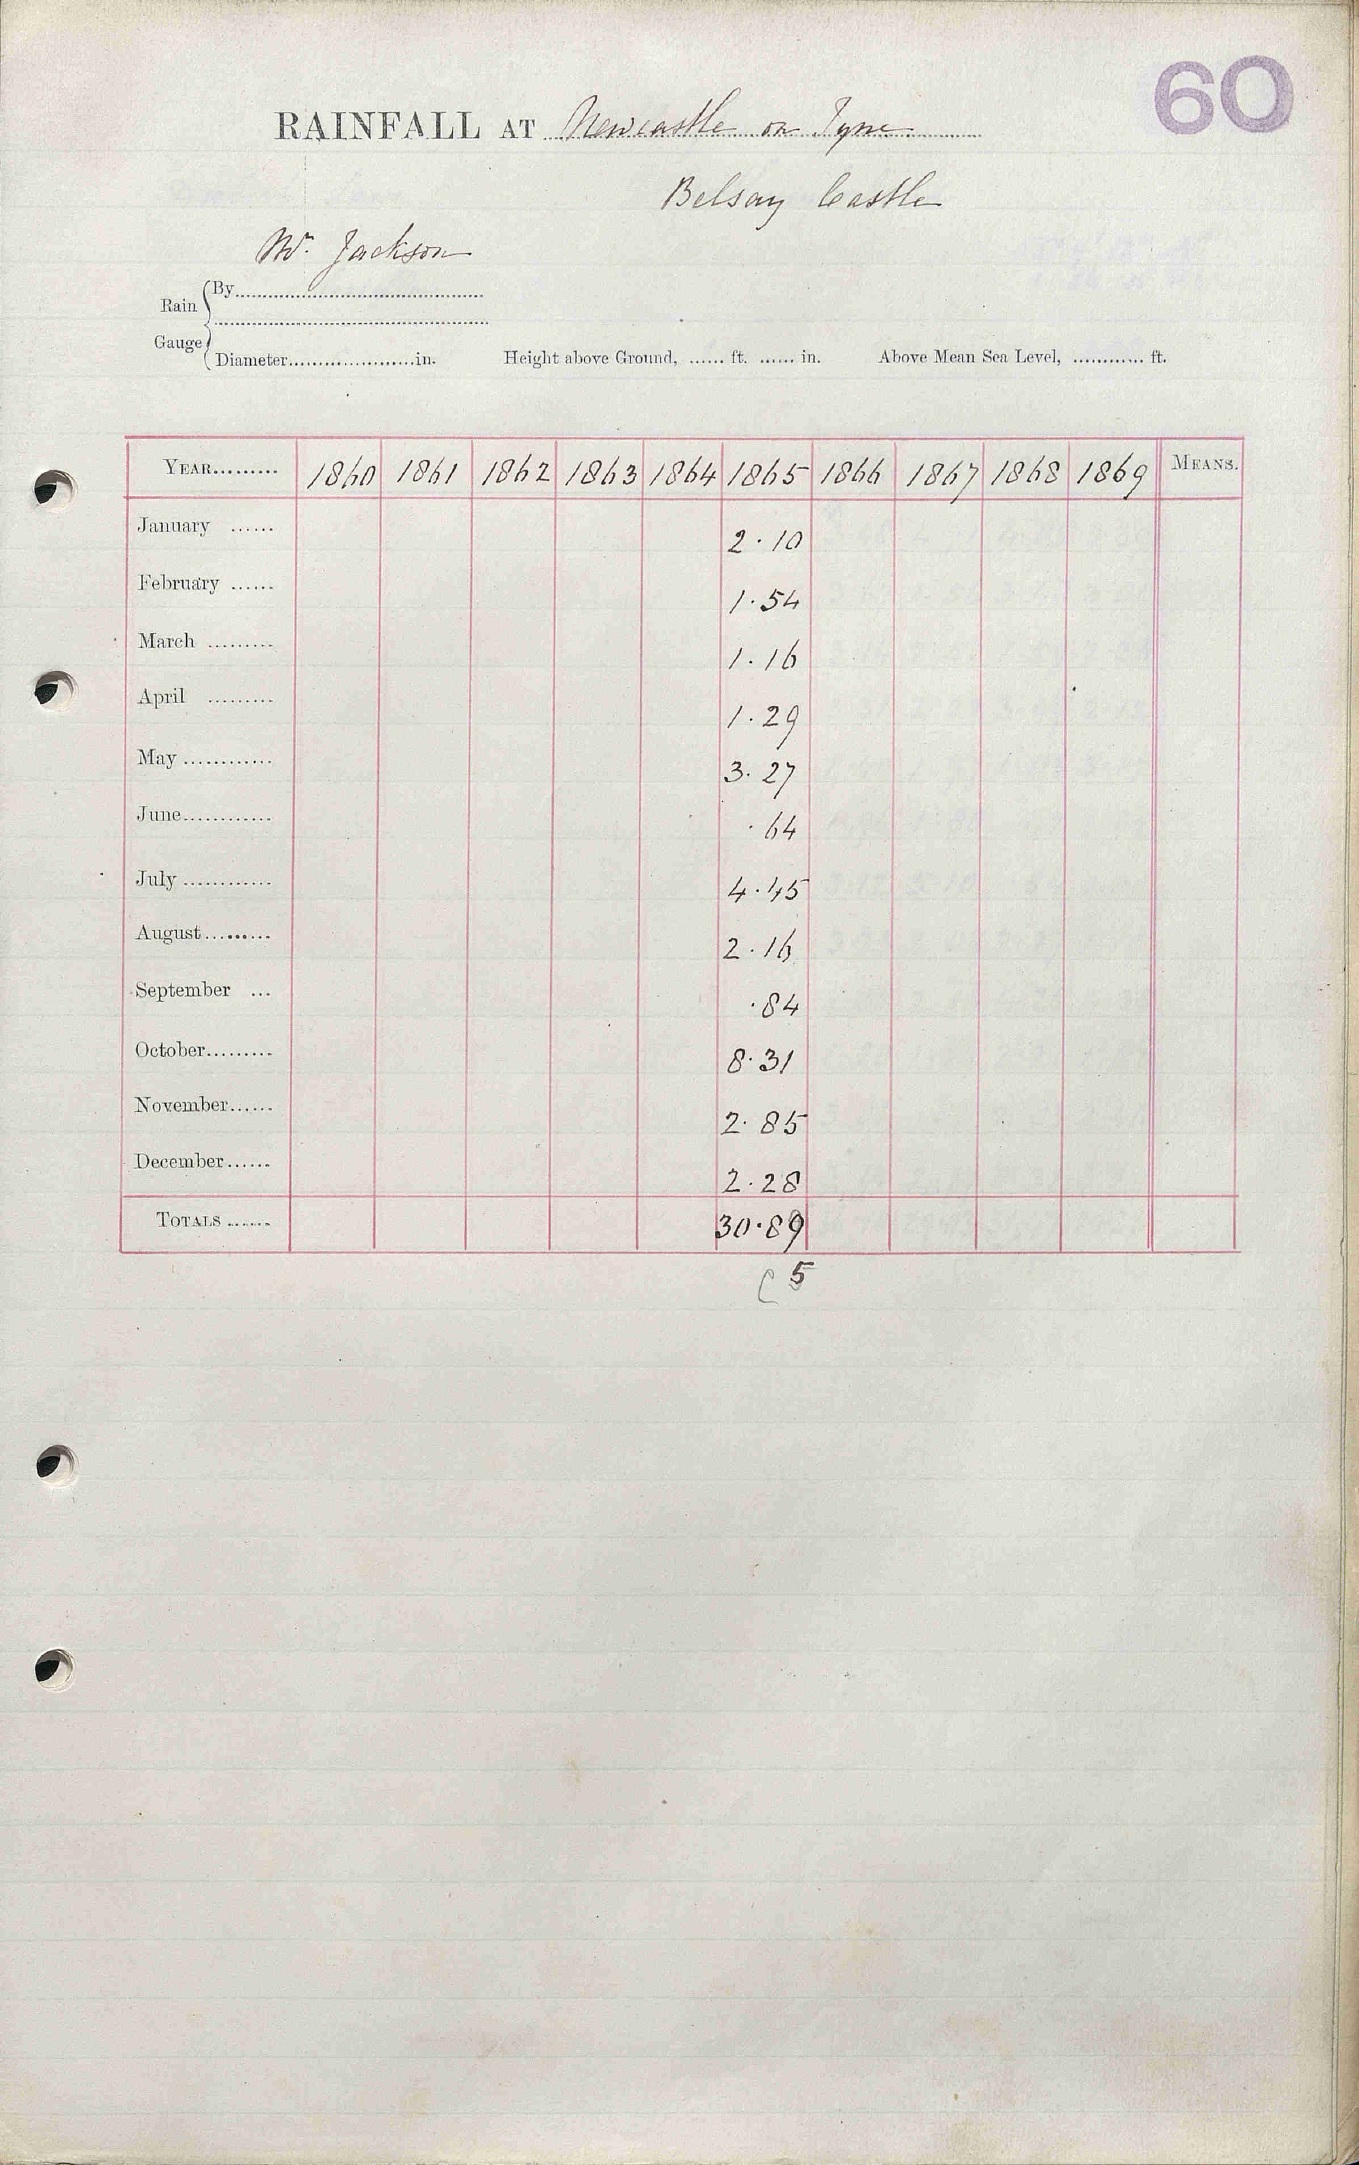 60
RAINFALL AT Newcastle on Tyne
Belsay Castle
Mr. Jackson
Rain Gauge
By
Diameter in. Height above Ground, ft. in. Above Mean Sea Level, ft.
YEAR 1860 1861 1862 1863 1864 1865 1866 1867 1868 1869 MEANS.
January 2.10
February 1.54
March 1.16
April 1.29
May 3.27
June .64
July 4.45
August 2.16
September .84
October 8.31
November 2.85
December 2.28
TOTALS 30.89
5